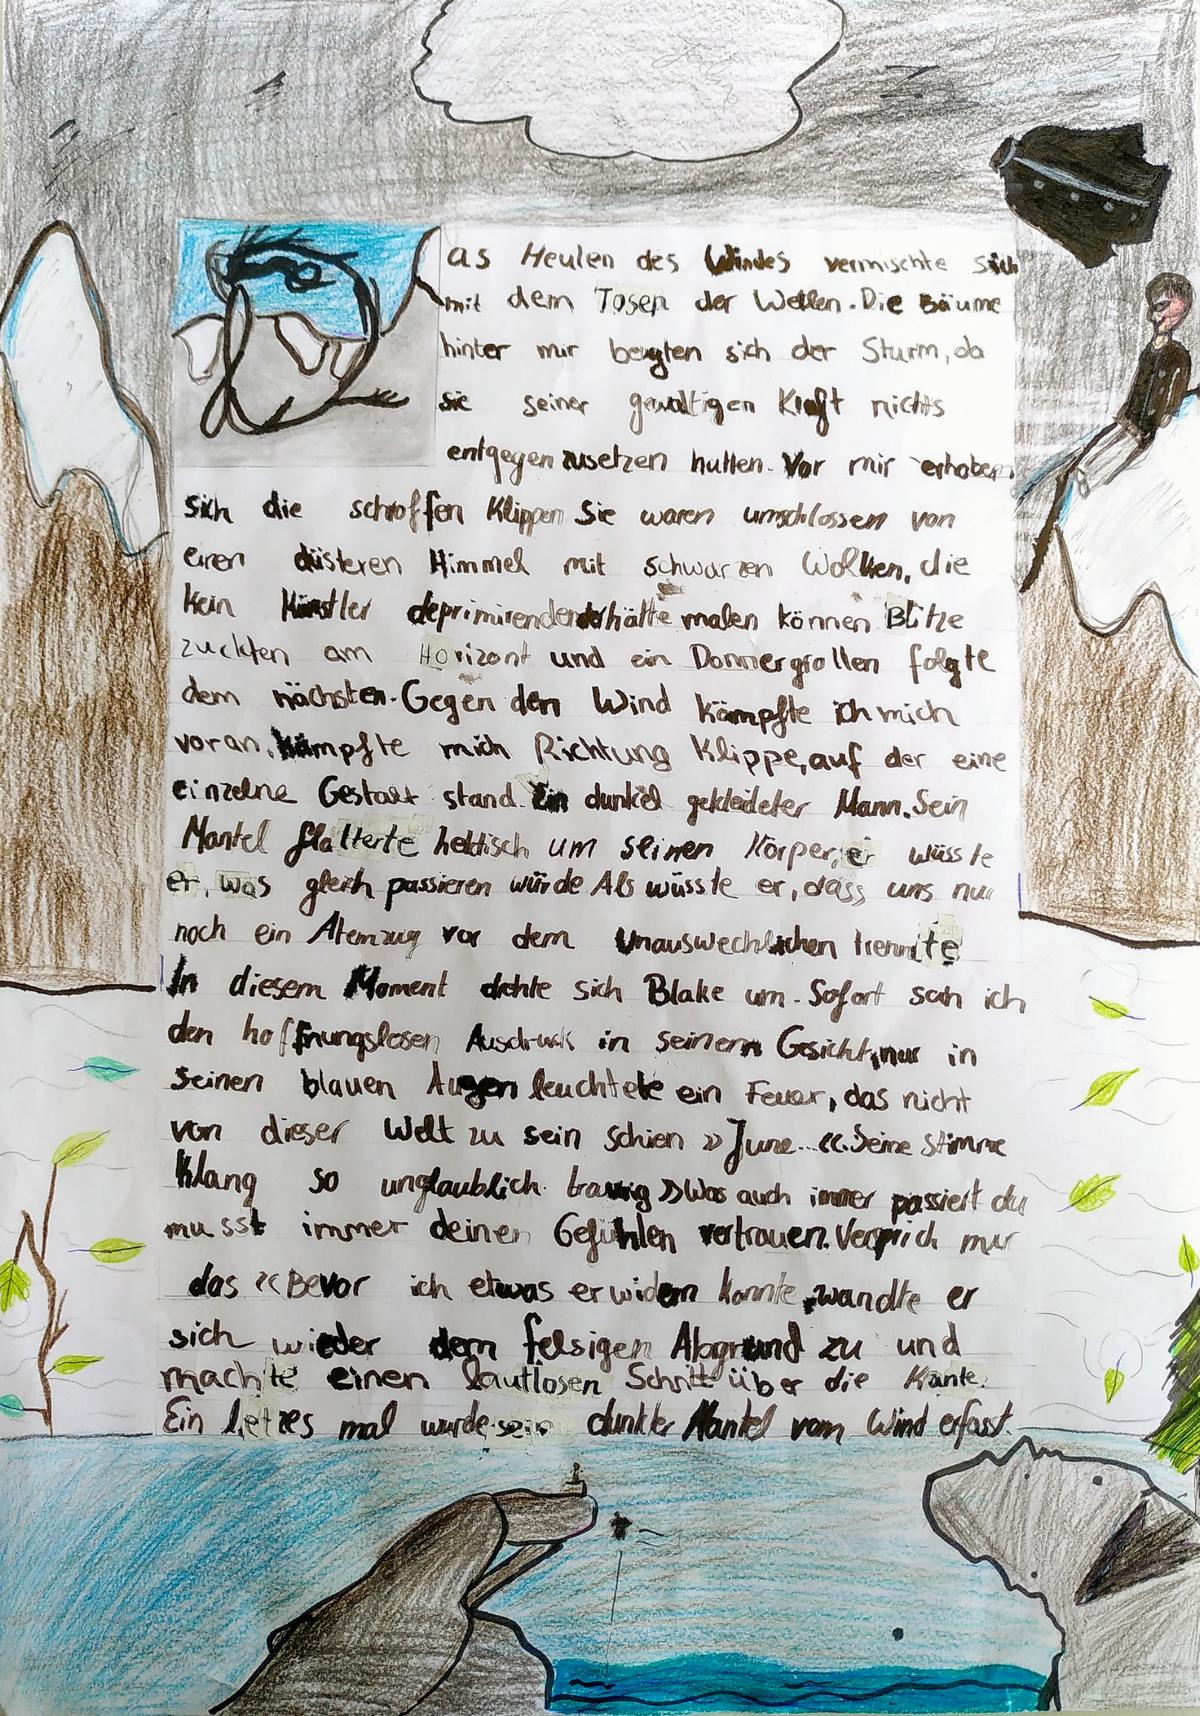 Das Heulen des Windes vermischte sich
mit dem Tosen der Wellen. Die Bäume
hinter mir beugten sich der Sturm, da
sie seiner gewaltigen Kraft nichts
entgegen zusetzen hatten. Vor mir erhoben
sich die schroffen Klippen Sie waren umschlossen von
einen düsteren Himmel mit schwarzen Wolken, die
kein Künstler deprimirender hätte malen können Blitze
zuckten am Horizont und ein Donnergrollen folgte
dem nächsten. Gegen den Wind kämpfte ich mich
voran, kämpfte mich Richtung Klippe, auf der eine
einzelne Gestalt stand. Ein dunkel gekleideter Mann. Sein
Mantel flatterte hektisch um seinen Körper, er wüsste
er, was gleich passieren würde Als wüsste er, dass uns nur
noch ein Atemzug vor dem Unauswechlichen trennte
In diesem Moment drehte sich Blake um. Sofort sah ich
den hoffnungslosen Ausdruck in seinem Gesicht, nur in
seinen blauen Augen leuchtete ein Feuer, das nicht
von dieser Welt zu sein schien »June...«. Seine Stimme
Klang so unglaublich traurig »Was auch immer passiert du
musst immer deinen Gefühlen vertrauen. Versprich mir
das «Bevor ich etwas erwidern konnte, wandte er
sich wieder dem felsigen Abgrund zu und
machte einen lautlosen Schritt über die Kante.
Ein letzes mal wurde sein dunkler Mantel vom Wind erfasst.